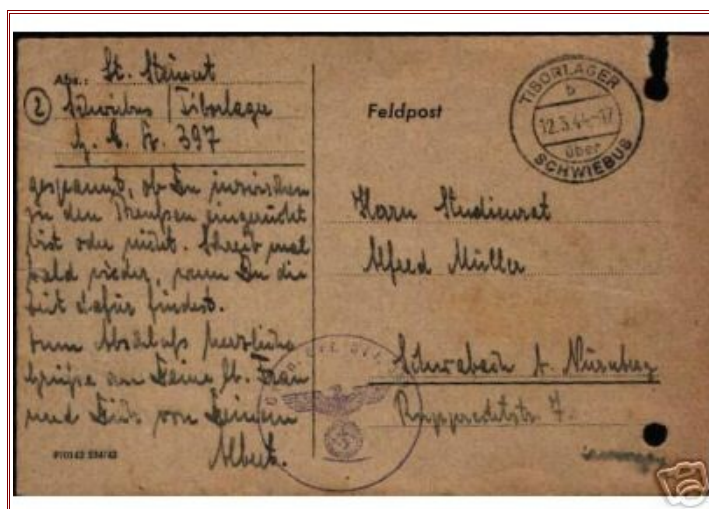 Abs.: St.
② Schwiebus / Tiborlager
397
gespannt, ob Du inzwischen
zu den Preußen eingerückt
bist oder nicht. Schreib mal
bald wieder, wenn Du die
Zeit dafür findest.
Zum Abschluß herzliche
Grüße an Deine lb. Frau
und Dich von Deinem
Albert.
Feldpost
TIBORLAGER
b
12.3.44-17
über
SCHWIEBUS
Herrn Studienrat
Alfred Müller
Schwabach b. Nürnberg
Rupprechtstr. 7.